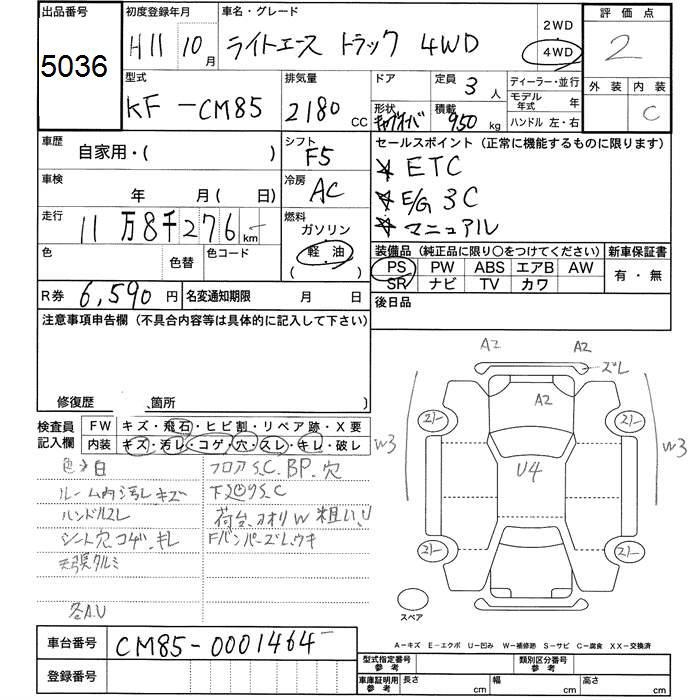 出品番号
5036
初度登録年月
H11 10月
車名・グレード
ライトエース トラック 4WD
2WD
4WD
評価点
2
外装 内装
C
型式
KF-CM85
排気量
2180 CC
ドア
形状
定員 3 人
積載 950 kg
ディーラー・並行
モデル年式 年
ハンドル 左・右
車歴
自家用・( )
シフト
F5
車検
年 月( 日)
冷房
AC
走行
11万8千276 km
燃料
ガソリン
軽油
( )
色
色替
色コード
セールスポイント(正常に機能するものに限ります)
☆ ETC
☆ E/G 3C
☆ マニュアル
装備品(純正品に限り○をつけてください)
PS PW ABS エアB AW
SR ナビ TV カワ
新車保証書
有・無
R券 6,590 円
名変通知期限 月 日
後日品
注意事項申告欄(不具合内容等は具体的に記入して下さい)
修復歴 、箇所 )
検査員記入欄
FW キズ・飛石・ヒビ割・リペア跡・X要
内装 キズ・汚レ・コゲ・穴・スレ・キレ・破レ
色→白
ルーム内汚レ キズ
ハンドルスレ
シート穴、コゲ、キレ
天張タルミ
各A.U
フロアS.C. BP. 穴
下廻りS.C
荷台、アオリW 粗い、U
Fバンパーズレウキ
A2 A2
ズレ
A2
U4
W3 W3
スペア
A-キズ E-エクボ U-凹み W-補修跡 S-サビ C-腐食 XX-交換済
車台番号
CM85-0001464
登録番号
型式指定番号 参考
類別区分番号 参考
車庫証明用 参考
長さ cm
幅 cm
高さ cm